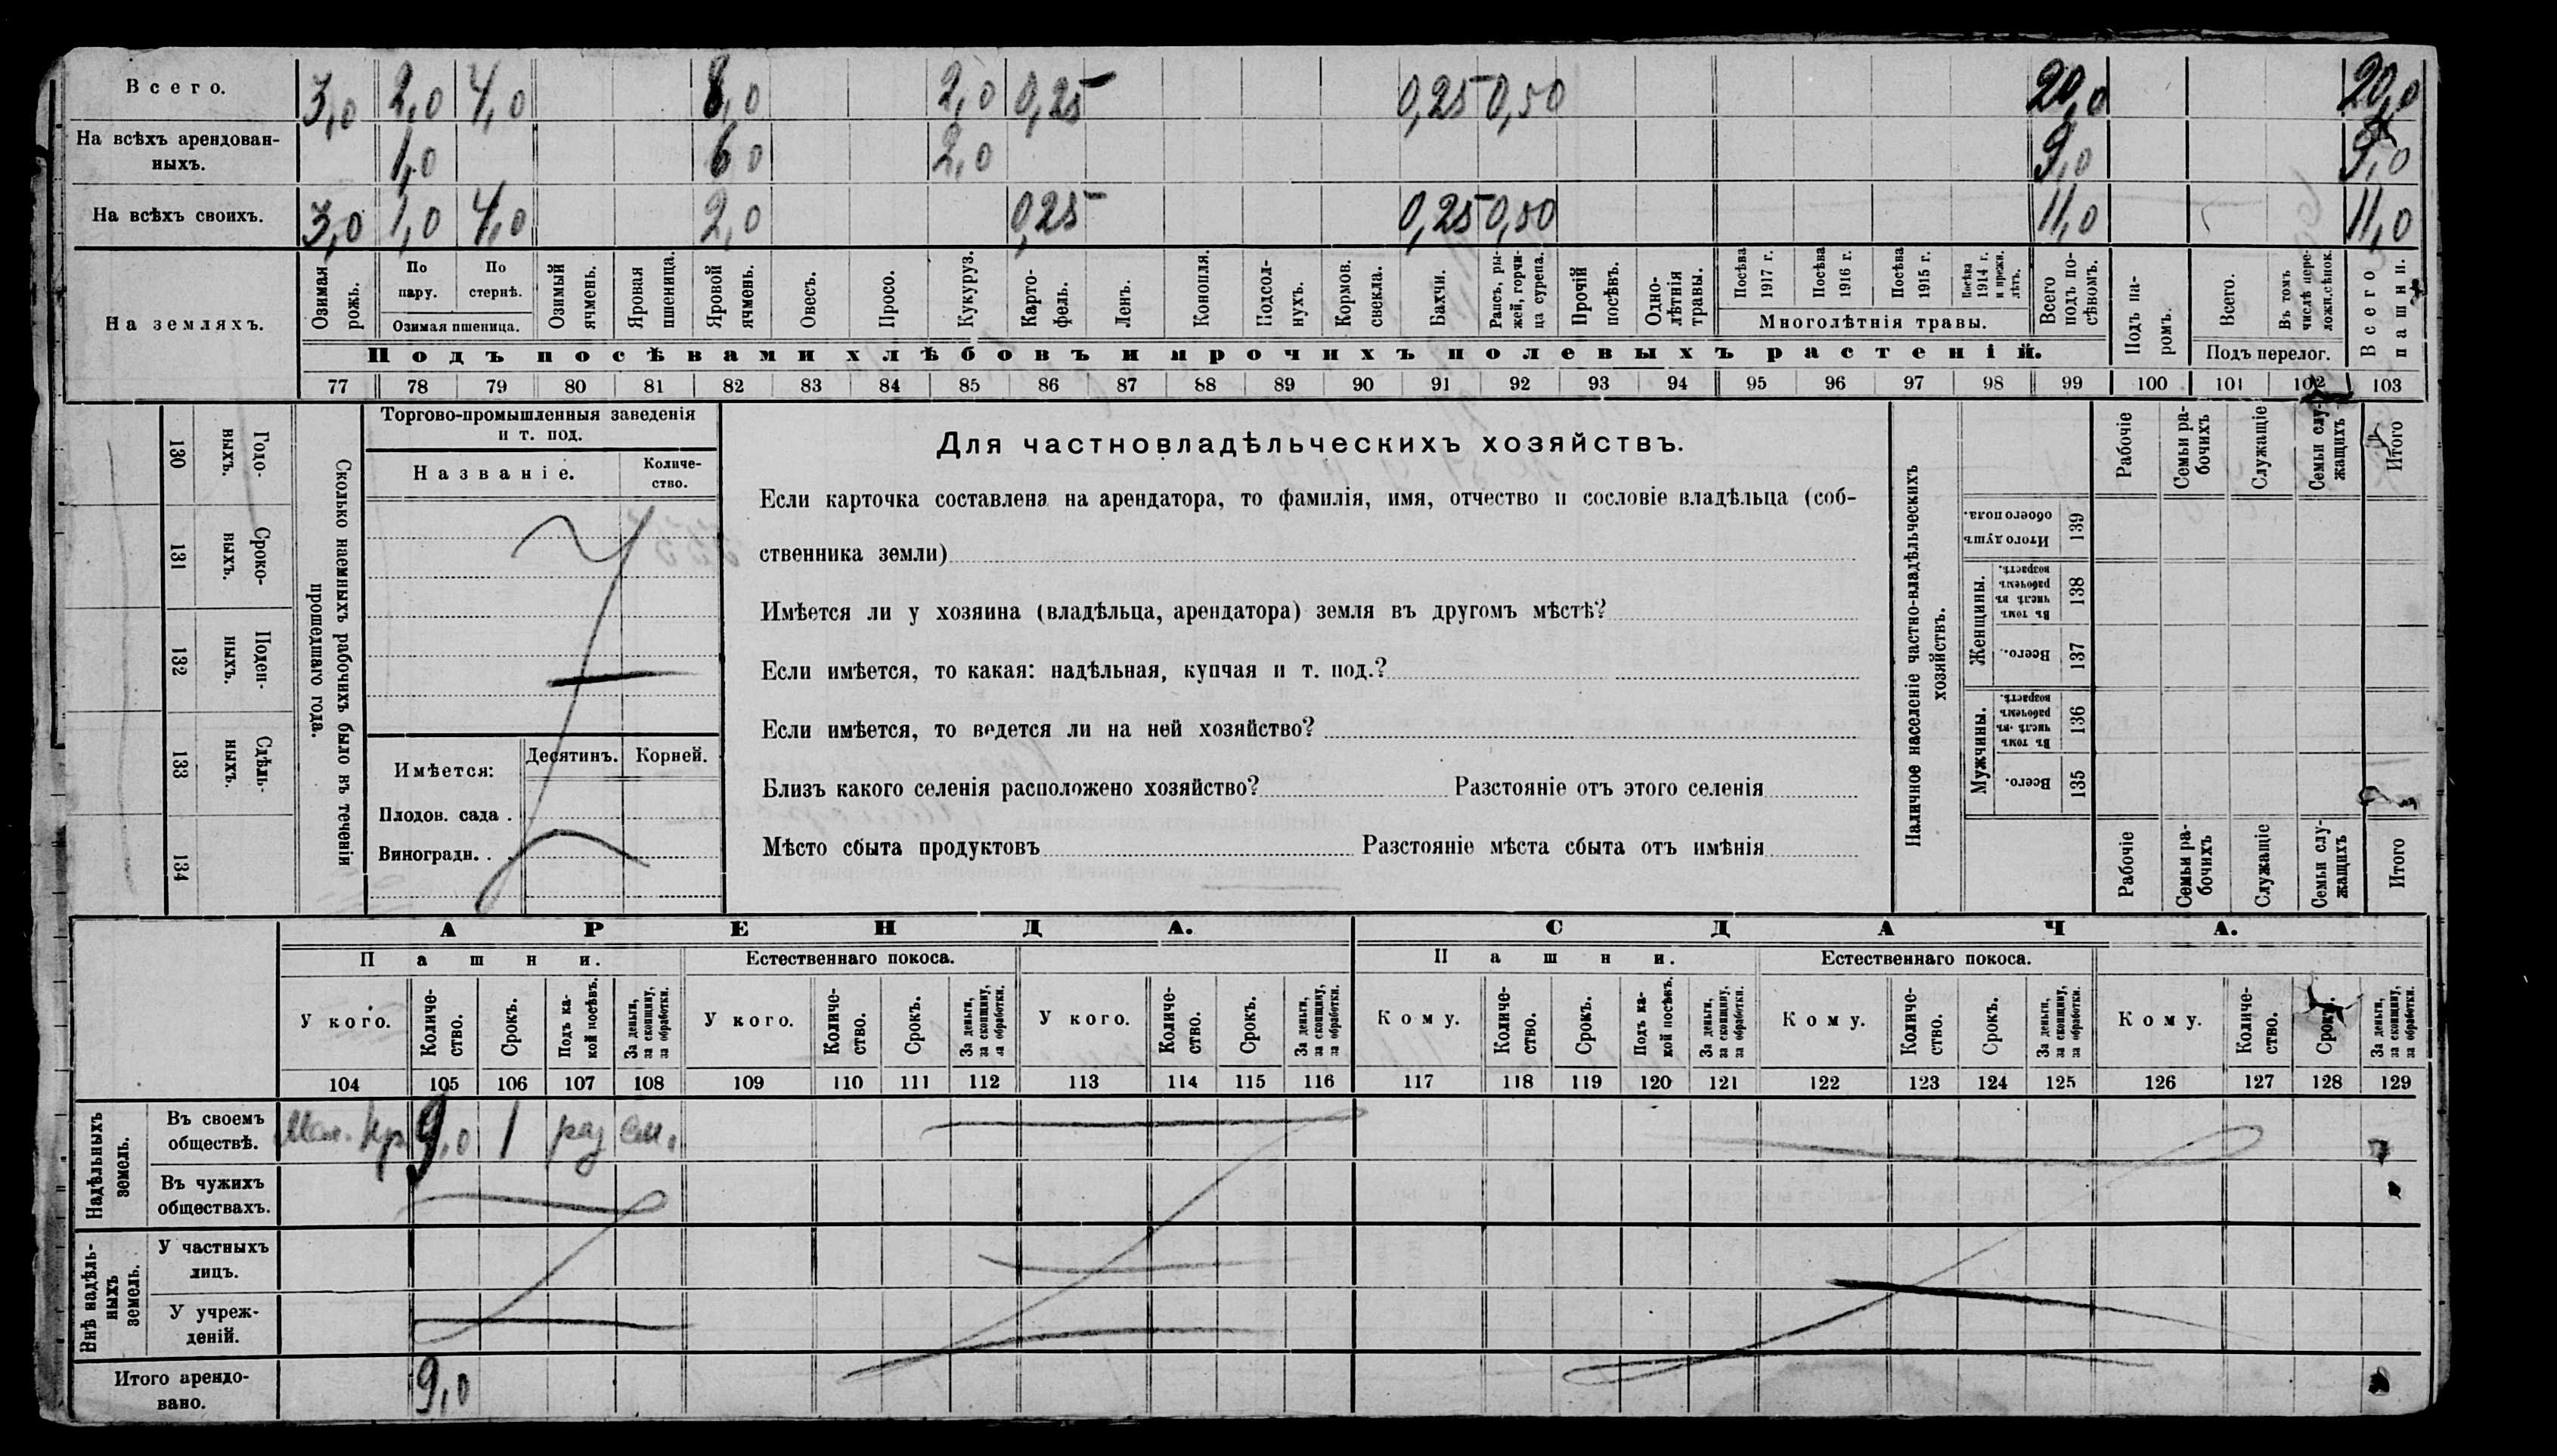 Всего. 3,0 2,0 4,0 8,0 2,0 0,25 0,25 0,50 20,0 20,0
На всѣхъ арендован-
ныхъ. 1,0 6 0 2,0 9,0 9,0
На всѣхъ своихъ. 3,0 1,0 4,0 2,0 0,25 0,25 0,50 11,0 11,0
На земляхъ.
Озимая
рожь.
По
пару.
По
стернѣ.
Озимая пшеница.
Озимый
ячмень.
Яровая
пшеница.
Яровой
ячмень.
Овесъ.
Просо.
Кукуруз.
Карто-
фель.
Ленъ.
Конопля.
Подсол-
нухъ.
Кормов.
свекла.
Бахчи.
Рапсъ, ры-
жей, горчи-
ца сурепа.
Прочій
посѣвъ.
Одно-
лѣтнія
травы.
Посѣва
1917 г.
Посѣва
1916 г.
Посѣва
1915 г.
Посѣва
1914 г.
и прежн.
лѣтъ.
Многолѣтнія травы.
Всего
подъ по-
сѣвомъ.
Подъ па-
ромъ.
Всего.
Въ томъ
числѣ пере-
ложн.сѣнок.
Подъ перелог.
Всего
пашни.
Подъ посѣвами хлѣбовъ и прочихъ полевыхъ растеній.
77 78 79 80 81 82 83 84 85 86 87 88 89 90 91 92 93 94 95 96 97 98 99 100 101 102 103
130
Годо-
выхъ.
131
Сроко-
ныхъ.
132
Поден-
ныхъ.
133
Сдѣль-
ныхъ.
134
Сколько наемныхъ рабочихъ было въ теченіи
прошедшаго года.
Торгово-промышленныя заведенія
и т. под.
Названіе.
Количе-
ство.
Имѣется:
Десятинъ.
Корней.
Плодов. сада .
Виноградн. . .
Для частновладѣльческихъ хозяйствъ.
Если карточка составлена на арендатора, то фамилія, имя, отчество и сословіе владѣльца (соб-
ственника земли)
Имѣется ли у хозяина (владѣльца, арендатора) земля въ другомъ мѣстѣ?
Если имѣется, то какая: надѣльная, купчая и т. под.?
Если имѣется, то ведется ли на ней хозяйство?
Близъ какого селенія расположено хозяйство? Разстояніе отъ этого селенія
Мѣсто сбыта продуктовъ Разстояніе мѣста сбыта отъ имѣнія
Наличное населеніе частно-владѣльческихъ
хозяйствъ.
Рабочіе
Семьи ра-
бочихъ
Служащіе
Семьи слу-
жащихъ
Итого
Итого душъ
обоего пола.
139
Женщины.
Въ томъ
числѣ въ
рабочемъ
возрастѣ.
138
Всего.
137
Мужчины.
Въ томъ
числѣ въ
рабочемъ
возрастѣ.
136
Всего.
135
Рабочіе
Семьи ра-
бочихъ
Служащіе
Семьи слу-
жащихъ
Итого
АРЕНДА. СДАЧА.
Пашни. Естественнаго покоса. Пашни. Естественнаго покоса.
У кого.
Количе-
ство.
Срокъ.
Подъ ка-
кой посѣвъ.
За деньги,
за скопщину,
за обработки.
У кого.
Количе-
ство.
Срокъ.
За деньги,
за скопщину,
за обработки.
У кого.
Количе-
ство.
Срокъ.
За деньги,
за скопщину,
за обработки.
Кому.
Количе-
ство.
Срокъ.
Подъ ка-
кой посѣвъ.
За деньги,
за скопщину,
за обработки.
Кому.
Количе-
ство.
Срокъ.
За деньги,
за скопщину,
за обработки.
Кому.
Количе-
ство.
Срокъ.
За деньги,
за скопщину,
за обработки.
104 105 106 107 108 109 110 111 112 113 114 115 116 117 118 119 120 121 122 123 124 125 126 127 128 129
Надѣльныхъ
земель.
Въ своемъ
обществѣ. 9,0 1 раз
Въ чужихъ
обществахъ.
Внѣ надѣль-
ныхъ
земель.
У частныхъ
лицъ.
У учреж-
деній.
Итого арендо-
вано. 9,0